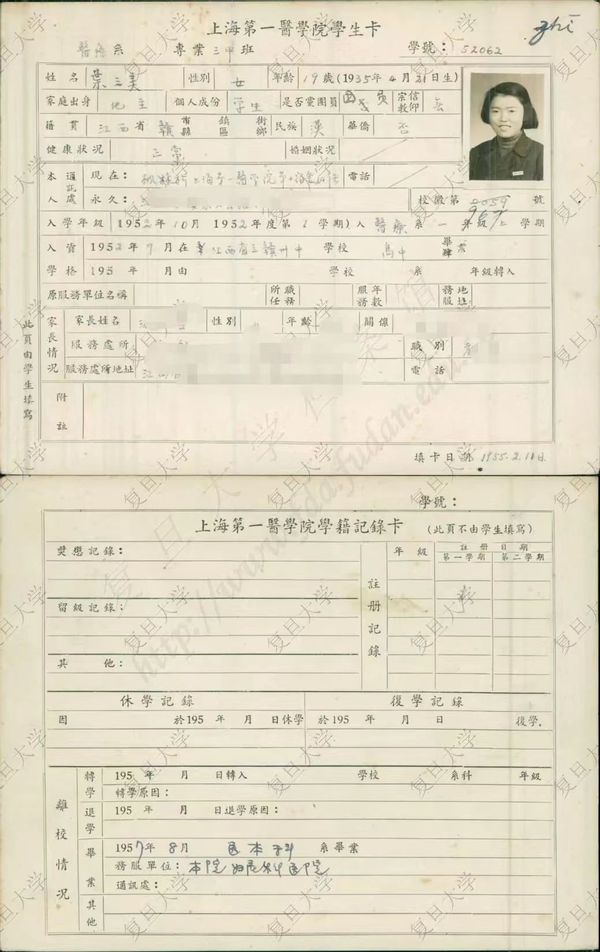 上海第一醫學院學生卡
醫療系 專業三甲班 學號：52062
姓名 葉三美 性別 女 年齡 19歲（1935年4月21日生）
家庭出身 地主 個人成份 學生 是否黨團員 團員 宗教信仰 無
籍貫 江西省 贛 市縣 鎮區 街鄉 民族 漢 華僑 否
健康狀況 正常 婚姻狀況
本人通訊處 現在： 上海第一醫學院 電話
永久： 校徽第 號
入學年級 1952年10月 1952年度第1學期）入 醫療 系 一 年級 上 學期
入學資格 1952年7月在 江西省立贛州中 學校 高中 畢肄業
195 年 月由 學校 系 年級轉入
原服務單位名稱 所任職務 服務年數 服務地址
家長情況 家長姓名 性別 年齡 關係
服務處所 職別
服務處所地址 電話
附註
此頁由學生填寫
填卡日期 1955.2.18日
學號：
上海第一醫學院學籍記錄卡 （此頁不由學生填寫）
獎懲記錄： 註冊記錄 年級 註冊日期
第一學期 第二學期
留級記錄：
其他：
休學記錄 復學記錄
因 於195 年 月 日休學 於195 年 月 日 復學.
離校情況 轉學 195 年 月 日轉入 學校 系科 年級
轉學原因：
退學 195 年 月 日退學原因：
畢業 1957年8月 醫本科 系畢業
務服單位：本院婦產科醫院
通訊處：
其他
復旦大學檔案館
http://www.fda.fudan.edu.cn
复旦大学